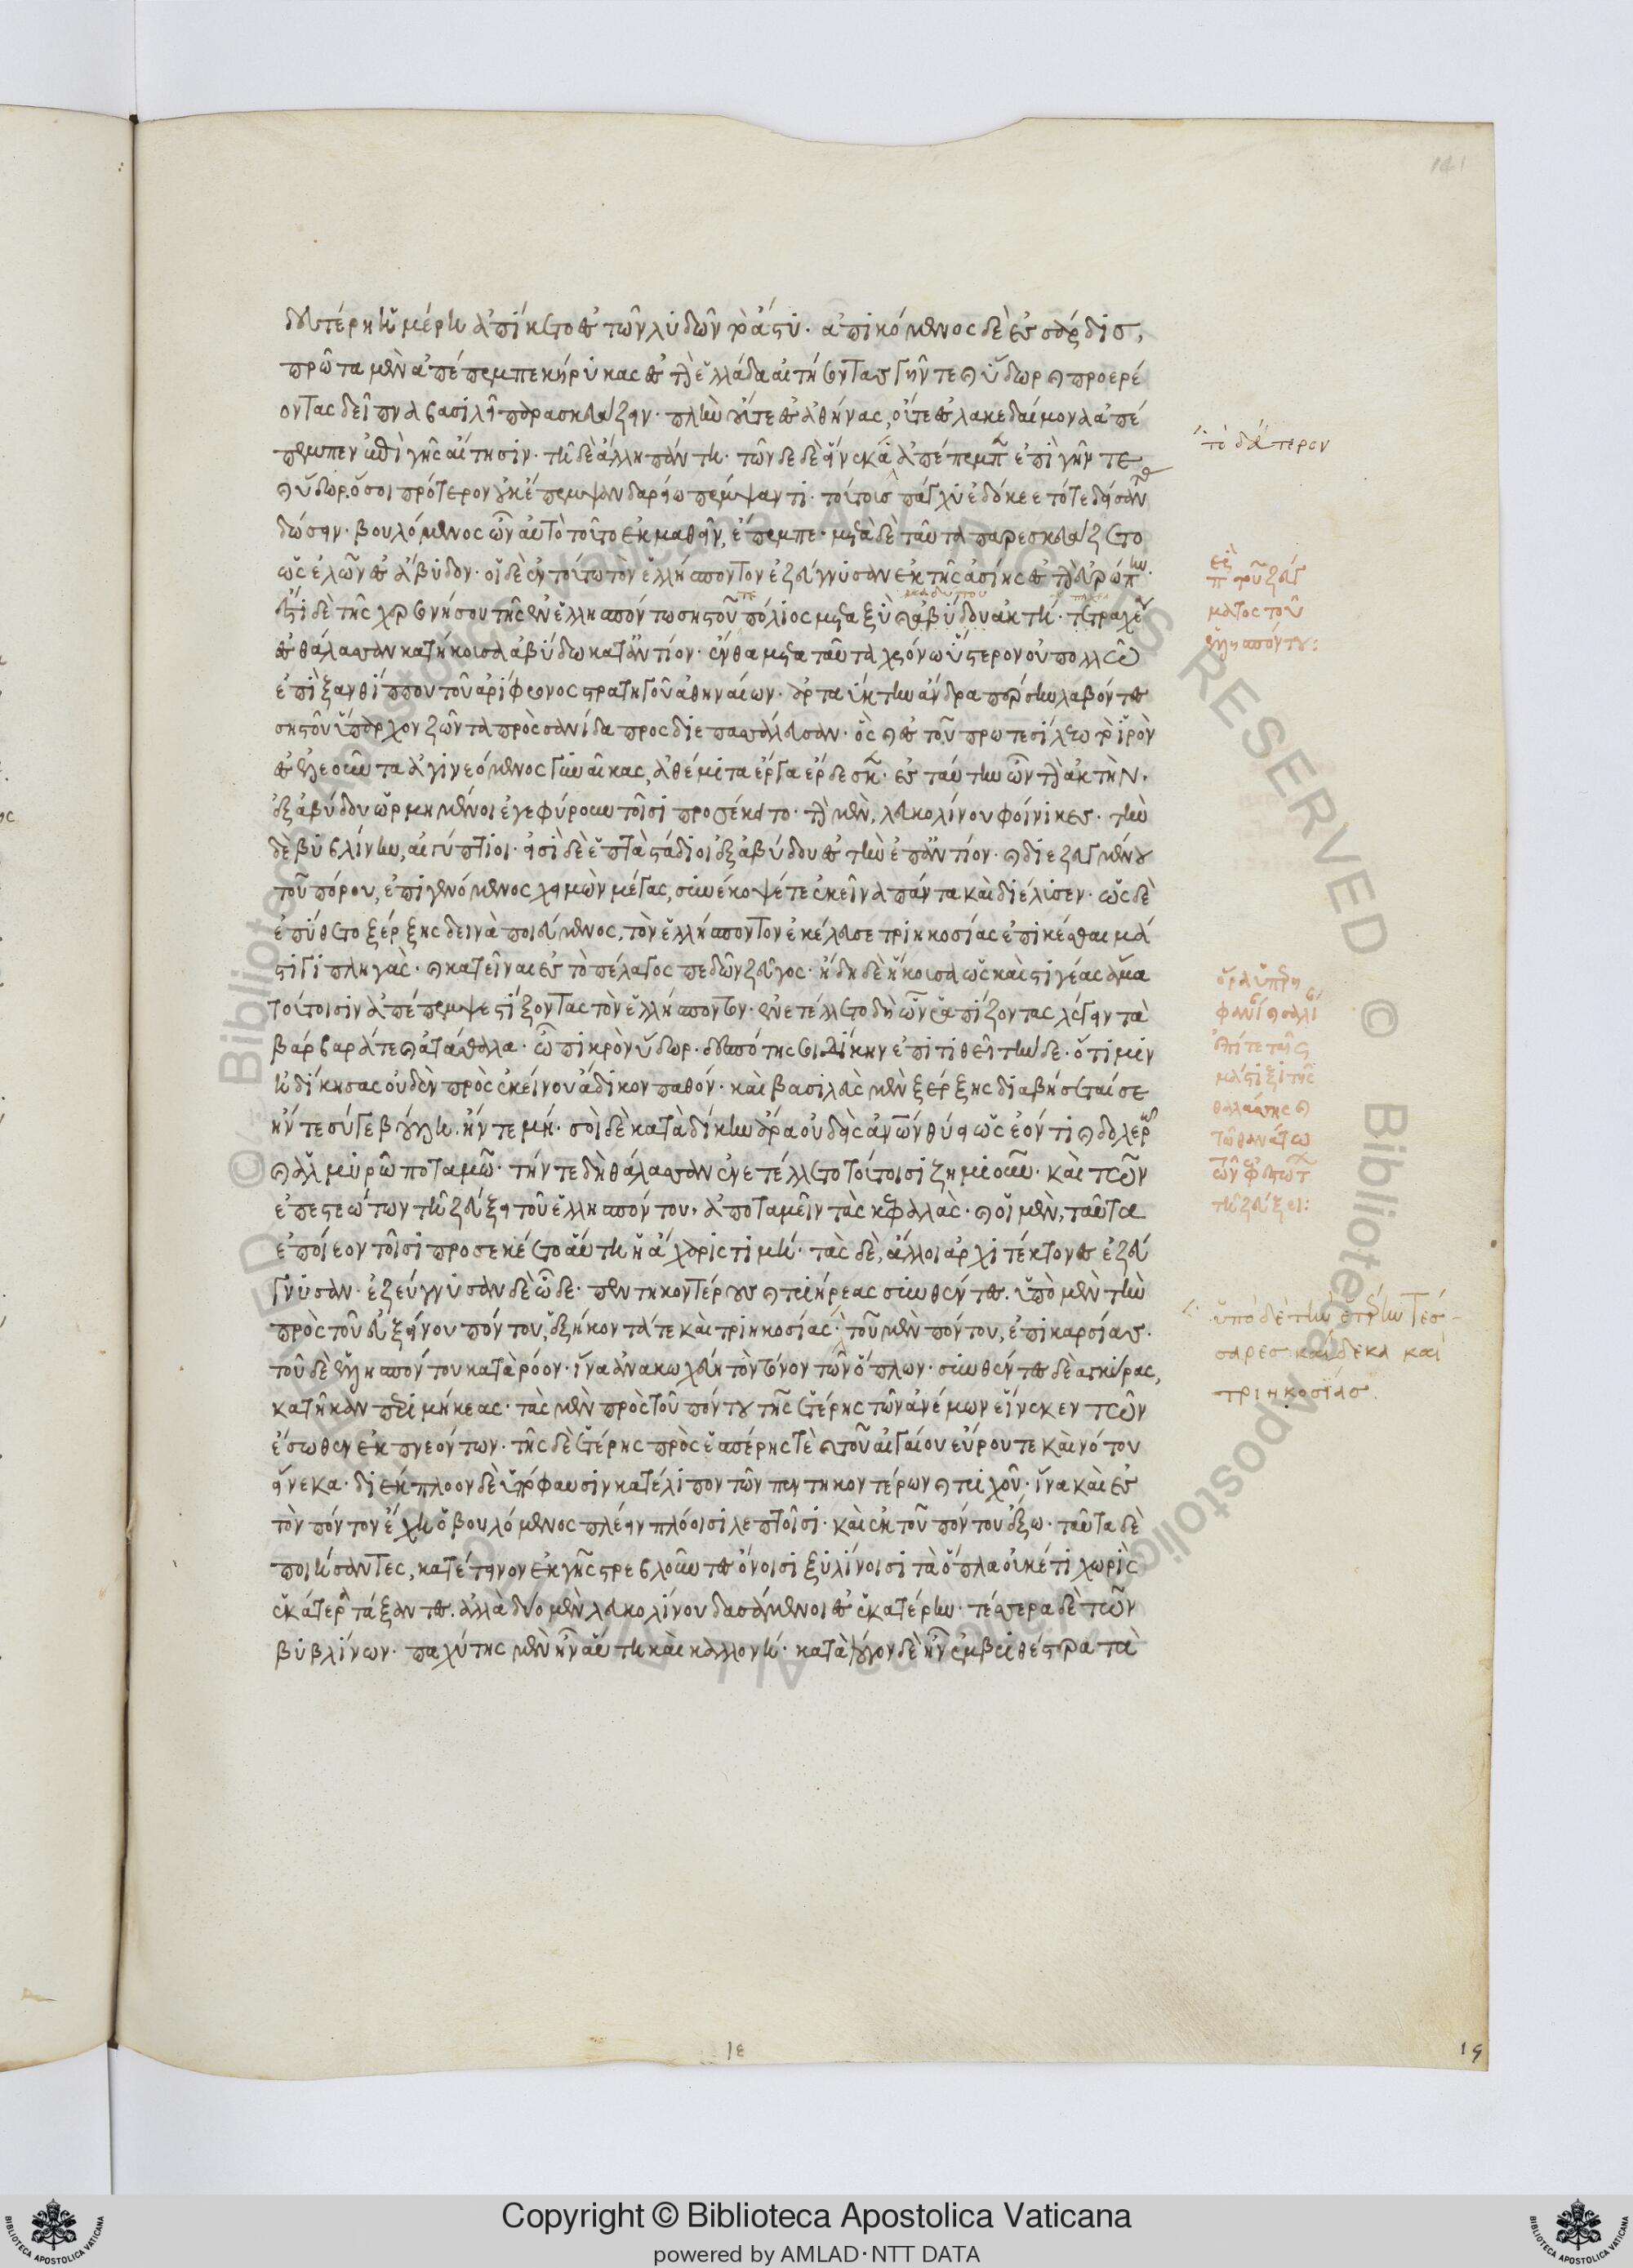 δευτέρη ἡμέρη ἀπίκετο ἐς τῶν λυδῶν τὸ ἄστυ· ἀπικόμενος δὲ ἐς σάρδις,
πρῶτα μὲν ἀπέπεμπε κήρυκας ἐς τὴν ἑλλάδα αἰτήσοντας γῆν τε καὶ ὕδωρ καὶ προερέ
οντας δεῖπνα βασιλεῖ παρασκευάζειν· πλὴν οὔτε ἐς ἀθήνας, οὔτε ἐς λακεδαίμονα ἀπέ
πεμπεν ἐπὶ γῆς αἴτησιν· τῇ δὲ ἄλλη πάντη· τῶνδε δὲ εἵνεκα ἀπέπεμπε ἐπὶ γῆν τε
καὶ ὕδωρ. ὅσοι πρότερον οὐκ ἔπεμψαν δαρείω πέμψαντι· τούτους πάγχυ ἐδόκεε τότε δείσαντας
δώσειν· βουλόμενος ὦν αὐτὸ τοῦτο ἐκμαθεῖν, ἔπεμπε· μετὰ δὲ ταῦτα παρεσκευάζετο
ὡς ἐλῶν ἐς ἄβυδον· οἱ δὲ ἐν τούτω τὸν ἑλλήσποντον ἐζεύγνυσαν ἐκ τῆς ἀσίης ἐς τὴν εὐρώπην·
ἔστι δὲ τῆς χερσονήσου τῆς ἐν ἑλλησπόντω σηστοῦ πόλιος μεταξὺ καὶ ἀβύδου ἀκτὴ· τετραχέη
ἐς θάλασσαν κατήκουσα ἀβύδω καταντίον· ἔνθα μετὰ ταῦτα χρόνω ὕστερον οὐ πολλῶ
ἐπὶ ξανθίππου τοῦ ἀρίφρονος στρατηγοῦ ἀθηναίων· ἀρταύκτην ἄνδρα πέρσην λαβόντες
σηστοῦ ὕπαρχον ζῶντα πρὸς σανίδα προσδιεπασσάλευσαν· ὃς καὶ ἐς τοῦ πρωτεσίλεω τὸ ἱρὸν
ἐς ἐλεοῦντα ἀγινεόμενος γυναῖκας, ἀθέμιτα ἔργα ἔρδεσκε· ἐς ταύτην ὦν τὴν ἀκτὴν.
ἐξ ἀβύδου ὡρμημένοι ἐγεφύρουν τοῖσι προσέκειτο· τὴν μὲν, λευκολίνου φοίνικες· τὴν
δὲ βυβλίνην, αἰγύπτιοι· εἰσὶ δὲ ἑπτὰ στάδιοι ἐξ ἀβύδου ἐς τὴν ἀπαντίον· καὶ δὴ ἐζευγμένου
τοῦ πόρου, ἐπιγενόμενος χειμὼν μέγας, συνέκοψέ τε ἐκεῖνα πάντα καὶ διέλυσεν· ὡς δὲ
ἐπύθετο ξέρξης δεινὰ ποιεύμενος, τὸν ἑλλήσποντον ἐκέλευσε τριηκοσίας ἐπικέσθαι μά
στιγι πληγὰς· καὶ κατεῖναι ἐς τὸ πέλαγος πεδῶν ζεῦγος· ἤδη δὲ ἤκουσα ὡς καὶ στιγέας ἅμα
τούτοισιν ἀπέπεμψε στίξοντας τὸν ἑλλήσποντον· ἐνετέλλετο δὴ ὦν ῥαπίζοντας λέγειν τὰ
βάρβαρά τε καὶ ἀτάσθαλα· ὦ πικρὸν ὕδωρ· δεσπότης σοι δίκην ἐπιτιθεῖ τήνδε· ὅτι μιν
ἠδίκησας οὐδὲν πρὸς ἐκείνου ἄδικον παθόν· καὶ βασιλεὺς μὲν ξέρξης διαβήσεταί σε
ἤν τε σύ γε βούλη. ἤν τε μή· σοὶ δὲ κατὰ δίκην ἄρα οὐδεὶς ἀνθρώπων θύει ὡς ἐόντι καὶ δολερῶ
καὶ ἁλμυρῶ ποταμῶ· τήν τε δὴ θάλασσαν ἐνετέλλετο τούτοισι ζημιοῦν· καὶ τῶν
ἐπεστεώτων τῇ ζεύξει τοῦ ἑλλησπόντου, ἀποταμεῖν τὰς κεφαλὰς· καὶ οἱ μὲν, ταῦτα
ἐποίεον τοῖσι προσεκέετο αὕτη ἡ ἄχαρις τιμή· τὰς δὲ, ἄλλοι ἀρχιτέκτονες ἐζεύ
γνυσαν· ἐζεύγνυσαν δὲ ὧδε· πεντηκοντέρους καὶ τριήρεας συνθέντες. ὑπὸ μὲν τὴν
πρὸς τοῦ εὐξείνου πόντου, ἑξήκοντά τε καὶ τριηκοσίας· τοῦ μὲν πόντου, ἐπικαρσίας·
τοῦ δὲ ἑλλησπόντου κατὰ ῥόον· ἵνα ἀνακωχεύη τὸν τόνον τῶν ὅπλων· συνθέντες δὲ ἀγκύρας,
κατῆκαν περιμήκεας· τὰς μὲν πρὸς τοῦ πόντου τῆς ἑτέρης τῶν ἀνέμων εἵνεκεν τῶν
ἔσωθεν ἐκπνεόντων· τῆς δὲ ἑτέρης πρὸς ἑσπέρης τὲ καὶ τοῦ αἰγαίου εὔρου τε καὶ νότου
εἵνεκα· διέκπλοον δὲ ὑπόφαυσιν κατέλιπον τῶν πεντηκοντέρων καὶ τριχοῦ· ἵνα καὶ ἐς
τὸν πόντον ἔχη ὁ βουλόμενος πλέειν πλόοισι λεπτοῖσι· καὶ ἐκ τοῦ πόντου ἔξω· ταῦτα δὲ
ποιήσαντες, κατέτεινον ἐκ γῆς στρεβλοῦντες ὄνοισι ξυλίνοισι τὰ ὅπλα οὐκέτι χωρὶς
ἑκάτερα τάξαντες. ἀλλὰ δύο μὲν λευκολίνου δασάμενοι ἐς ἑκατέρην· τέσσερα δὲ τῶν
βυβλίνων· παχύτης μὲν ἦν αὕτη καὶ καλλονή· κατὰ λόγον δὲ ἦν ἐμβριθέστερα τὰ
τὸ δεύτερον
περὶ τοῦ ζεύγ
ματος τοῦ
ἑλλησπόντου:
ὑπὸ δὲ τὴν ἑτέρην τέσ-
σαρες καίδεκα καὶ
τριηκοσίας.